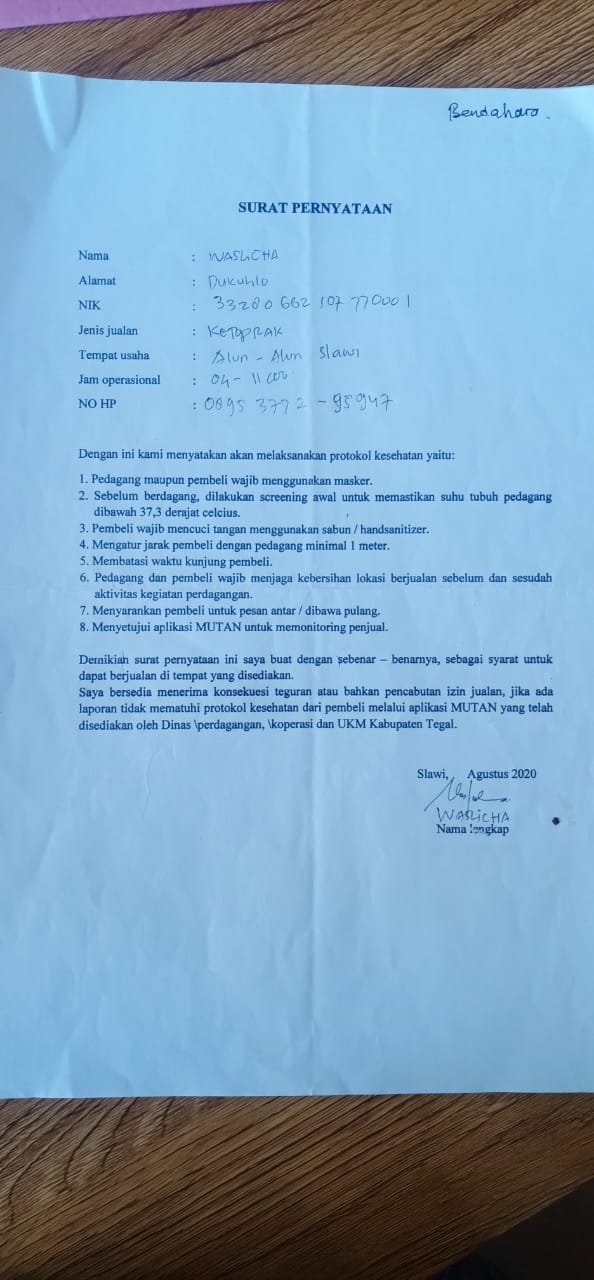 Bendahara.
SURAT PERNYATAAN
Nama : WASLICHA
Alamat : Dukuhlo
NIK : 33280 662 107 770001
Jenis jualan : KETOPRAK
Tempat usaha : Alun - Alun Slawi
Jam operasional : 04 - 11
NO HP : 0895 3772 - 95947
Dengan ini kami menyatakan akan melaksanakan protokol kesehatan yaitu:
1. Pedagang maupun pembeli wajib menggunakan masker.
2. Sebelum berdagang, dilakukan screening awal untuk memastikan suhu tubuh pedagang
dibawah 37,3 derajat celcius.
3. Pembeli wajib mencuci tangan menggunakan sabun / handsanitizer.
4. Mengatur jarak pembeli dengan pedagang minimal 1 meter.
5. Membatasi waktu kunjung pembeli.
6. Pedagang dan pembeli wajib menjaga kebersihan lokasi berjualan sebelum dan sesudah
aktivitas kegiatan perdagangan.
7. Menyarankan pembeli untuk pesan antar / dibawa pulang.
8. Menyetujui aplikasi MUTAN untuk memonitoring penjual.
Demikiah surat pernyataan ini saya buat dengan sebenar – benarnya, sebagai syarat untuk
dapat berjualan di tempat yang disediakan.
Saya bersedia menerima konsekuesi teguran atau bahkan pencabutan izin jualan, jika ada
laporan tidak mematuhi protokol kesehatan dari pembeli melalui aplikasi MUTAN yang telah
disediakan oleh Dinas \perdagangan, \koperasi dan UKM Kabupaten Tegal.
Slawi, Agustus 2020
WASLICHA
Nama lengkap